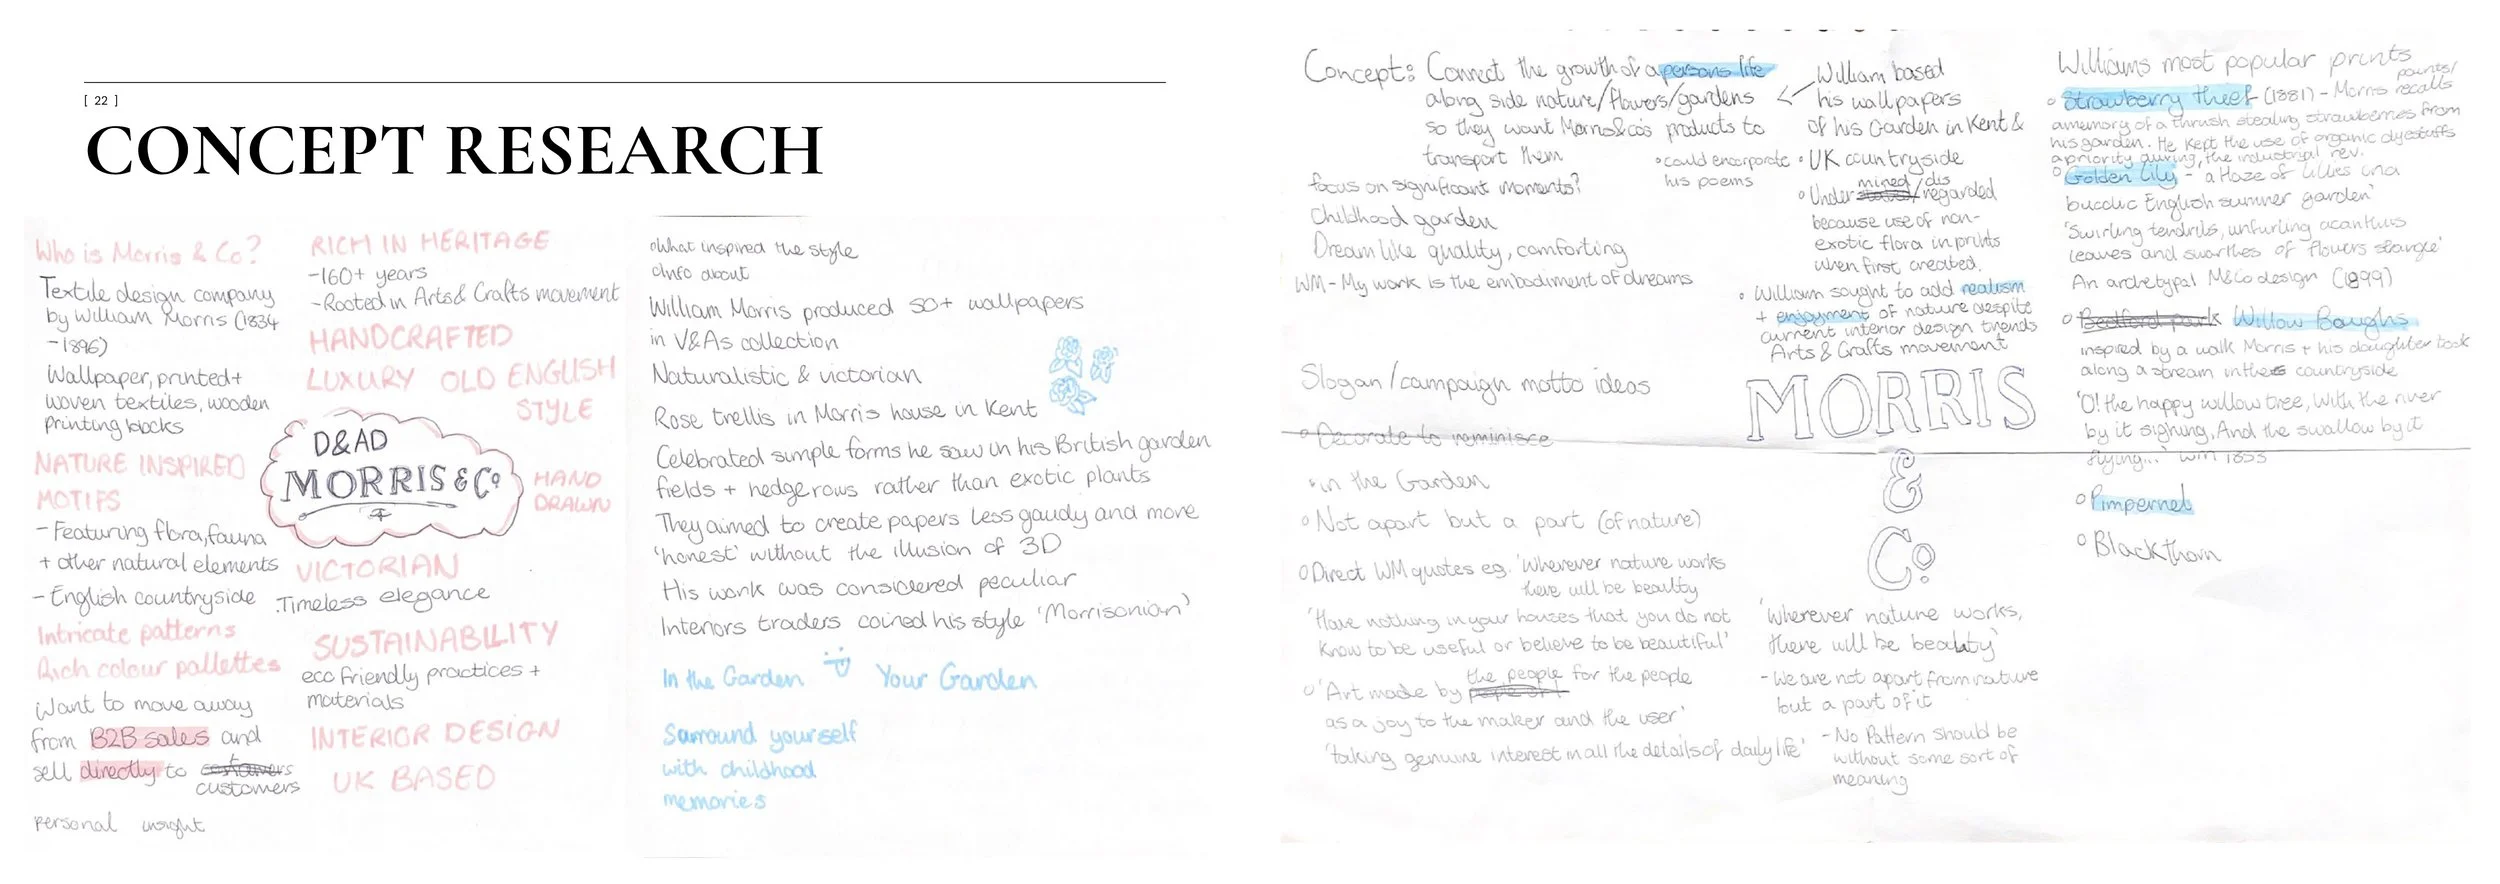 [ 22 ]
CONCEPT RESEARCH
Who is Morris & Co?
Textile design company
by William Morris (1834
-1896)
Wallpaper, printed+
woven textiles, wooden
printing blocks
NATURE INSPIRED
MOTIFS
- Featuring flora, fauna
+ other natural elements
- English countryside
Intricate patterns
Rich colour pallettes
Want to move away
from B2B sales and
sell directly to
customers
personal insight
RICH IN HERITAGE
-160+ years
-Rooted in Arts& Crafts movement
HANDCRAFTED
LUXURY OLD ENGLISH
STYLE
D&AD
MORRIS & Co
HAND
DRAWN
VICTORIAN
Timeless elegance
SUSTAINABILITY
eco friendly practices +
materials
INTERIOR DESIGN
UK BASED
What inspired the style
Info about
William Morris produced 50+ wallpapers
in V&As collection
Naturalistic & victorian
Rose trellis in Morris house in Kent
Celebrated simple forms he saw in his British garden
fields + hedgerows rather than exotic plants
They aimed to create papers less gaudy and more
'honest' without the illusion of 3D
His work was considered peculiar
Interiors traders coined his style 'Morrisonian'
In the Garden Your Garden
Surround yourself
with childhood
memories
Concept: Connect the growth of a persons life
along side nature/flowers/gardens
so they want Morris&co's products to
transport them
focus on significant moments?
Childhood garden
Dream like quality, comforting
WM - My work is the embodiment of dreams
could encorporate
his poems
William based
his wallpapers
of his Garden in Kent &
UK countryside
Undermined/disregarded
because use of non-
exotic flora in prints
when first created.
William sought to add realism
+ enjoyment of nature despite
current interior design trends
Arts & Crafts movement
Slogan/campaign motto ideas
Decorate to reminisce
in the Garden
Not apart but a part (of nature)
Direct WM quotes eg. 'Wherever nature works
there will be beaulty
'Have nothing in your houses that you do not
know to be useful or believe to be beautiful'
'Art made by the people for the people
as a joy to the maker and the user'
'taking genuine interest in all the details of daily life'
MORRIS
&
Co
'Wherever nature works,
there will be beauty'
- We are not apart from nature
but a part of it
- No Pattern should be
without some sort of
meaning
Williams most popular prints
Strawberry theef (1881) - Morris recalls
paints/
a memory of a thrush stealing strawberries from
his garden. He kept the use of organic dyestuffs
a priority during the industrial rev.
Golden Lily - 'a Haze of Lillies in a
bucolic English summer garden'
'Swirling tendrils, unfurling acanthus
leaves and swarthes of flowers
An archetypal M&Co design (1899)
Bedford park Willow Boughs
inspired by a walk Morris + his daughter took
along a stream in the countryside
'O! the happy willow tree, With the river
by it sighing, And the swallow by it
flying...' WM 1853
Pimpernel
Blackthorn